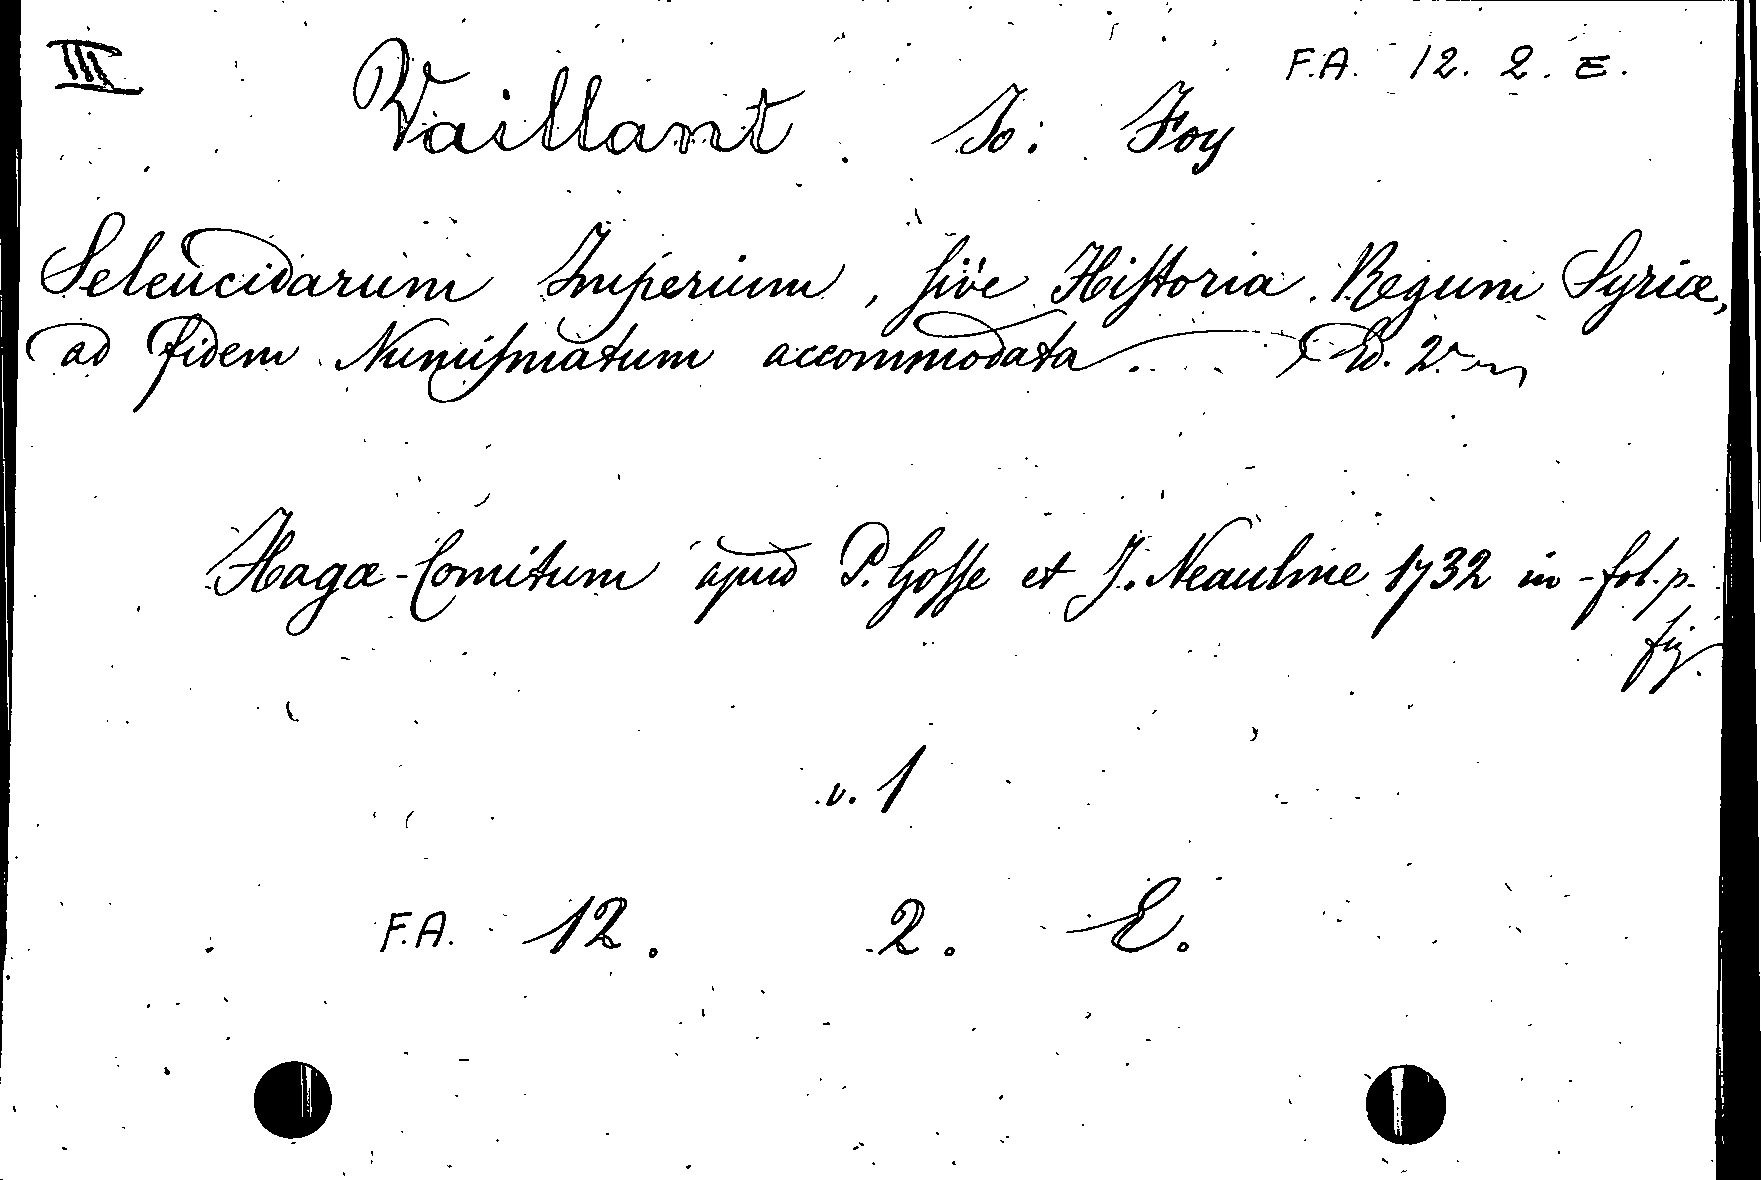 III F.A. 12. 2. E.
Vaillant. Jo: Foy
Seleucidarum Imperium, sive Historia Regum Syriæ,
ad fidem Numismatum accommodata. Ed. 2.
Hagæ-Comitum apud P. Gosse et J. Neaulme 1732 in-fol. p.
fig.
v. 1
F.A. 12. 2. E.